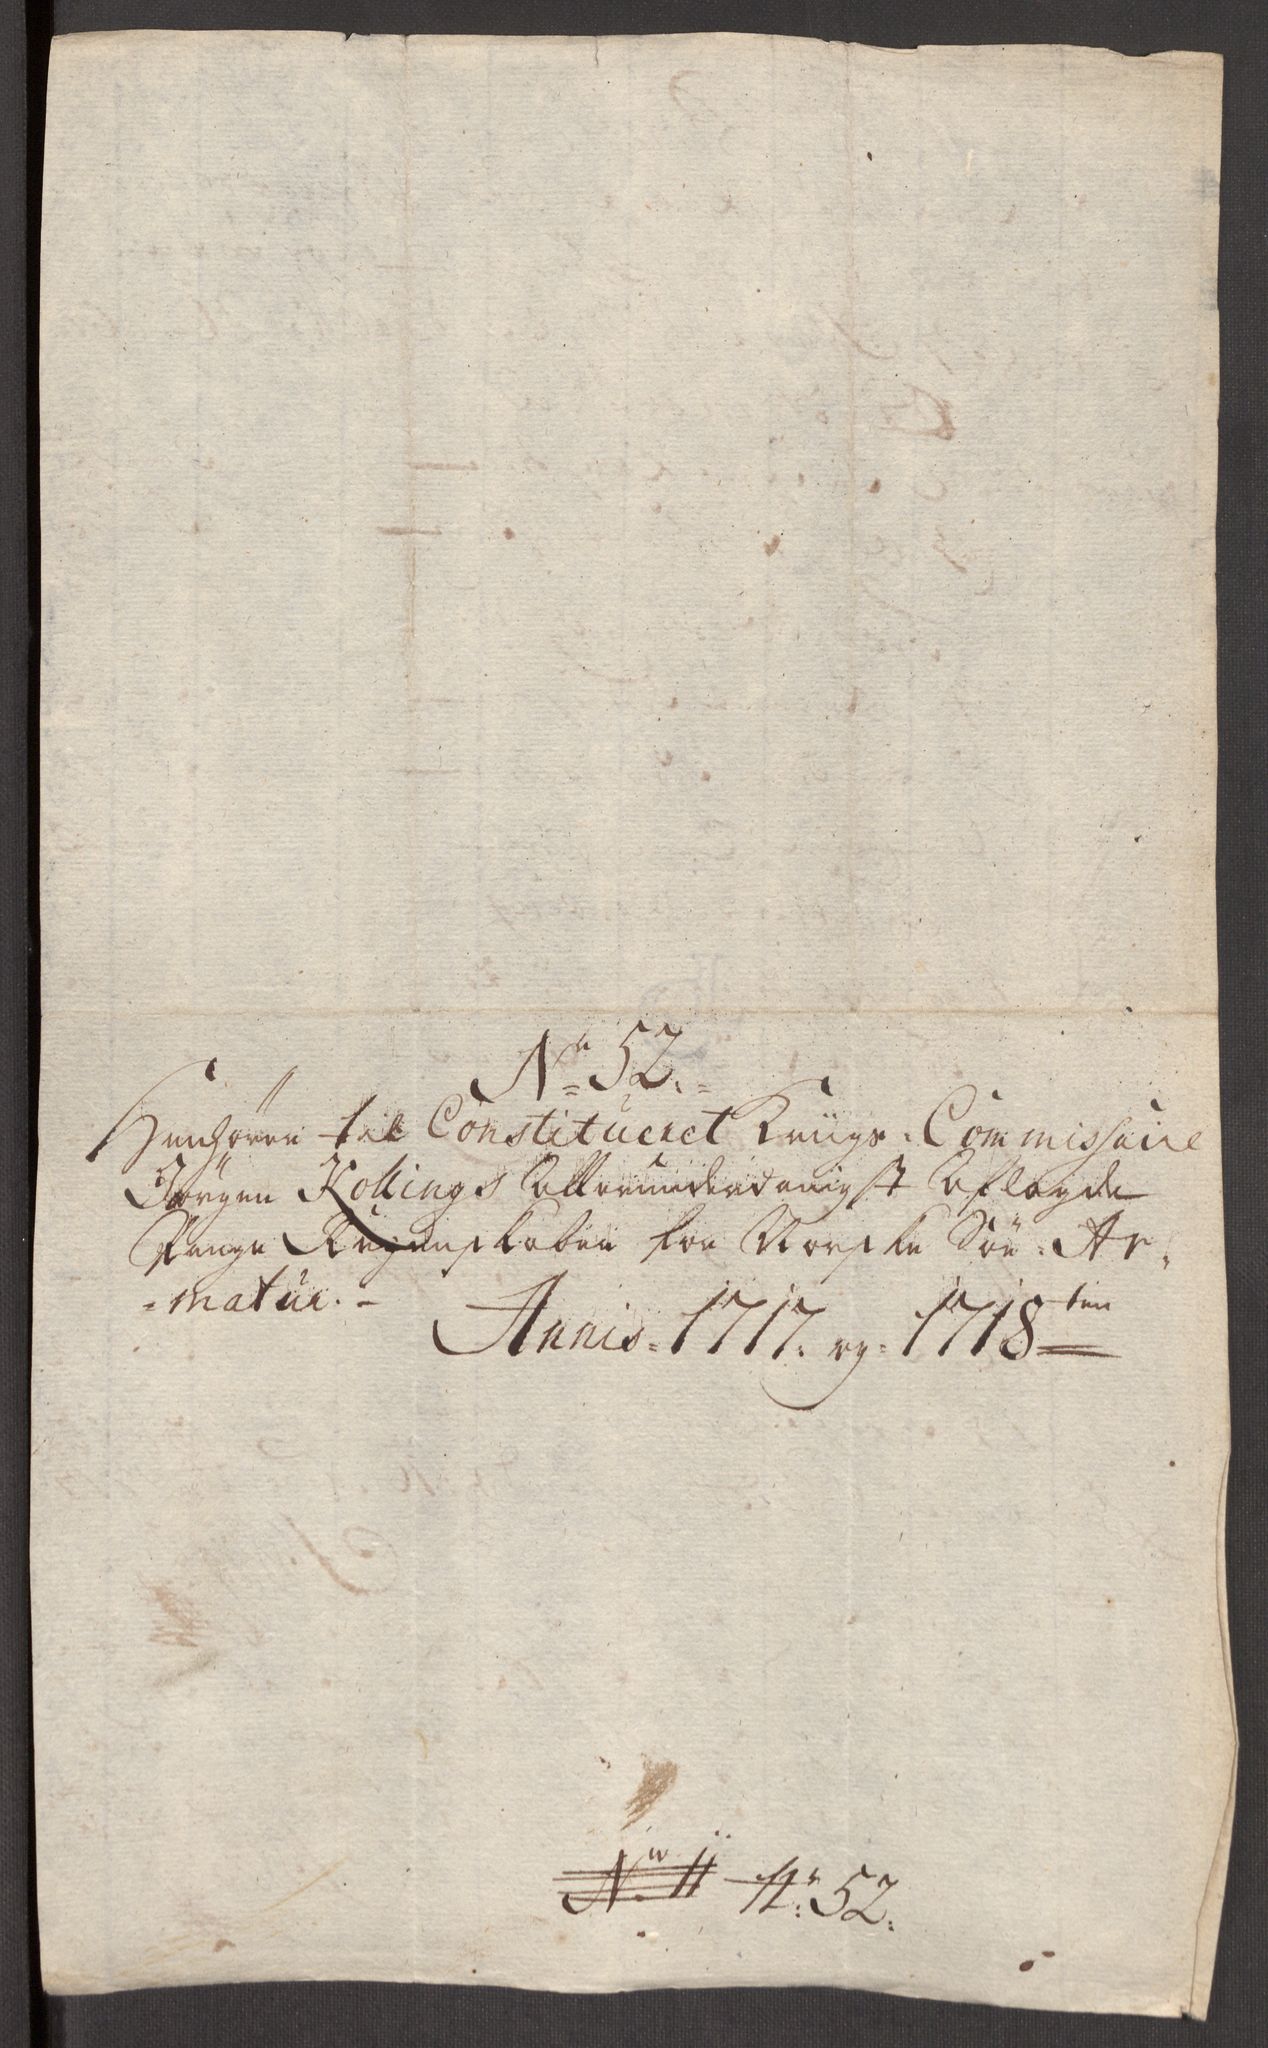 No 52.
Henhörer til Constitueret Krigs-Commissaire
Jörgen Kollings Allerunderdanigst Aflagde
Penge Regenskaber for Norske Söe-Ar-
-matur.-
Annis 1717. og 1718ten
No 11 No 52.